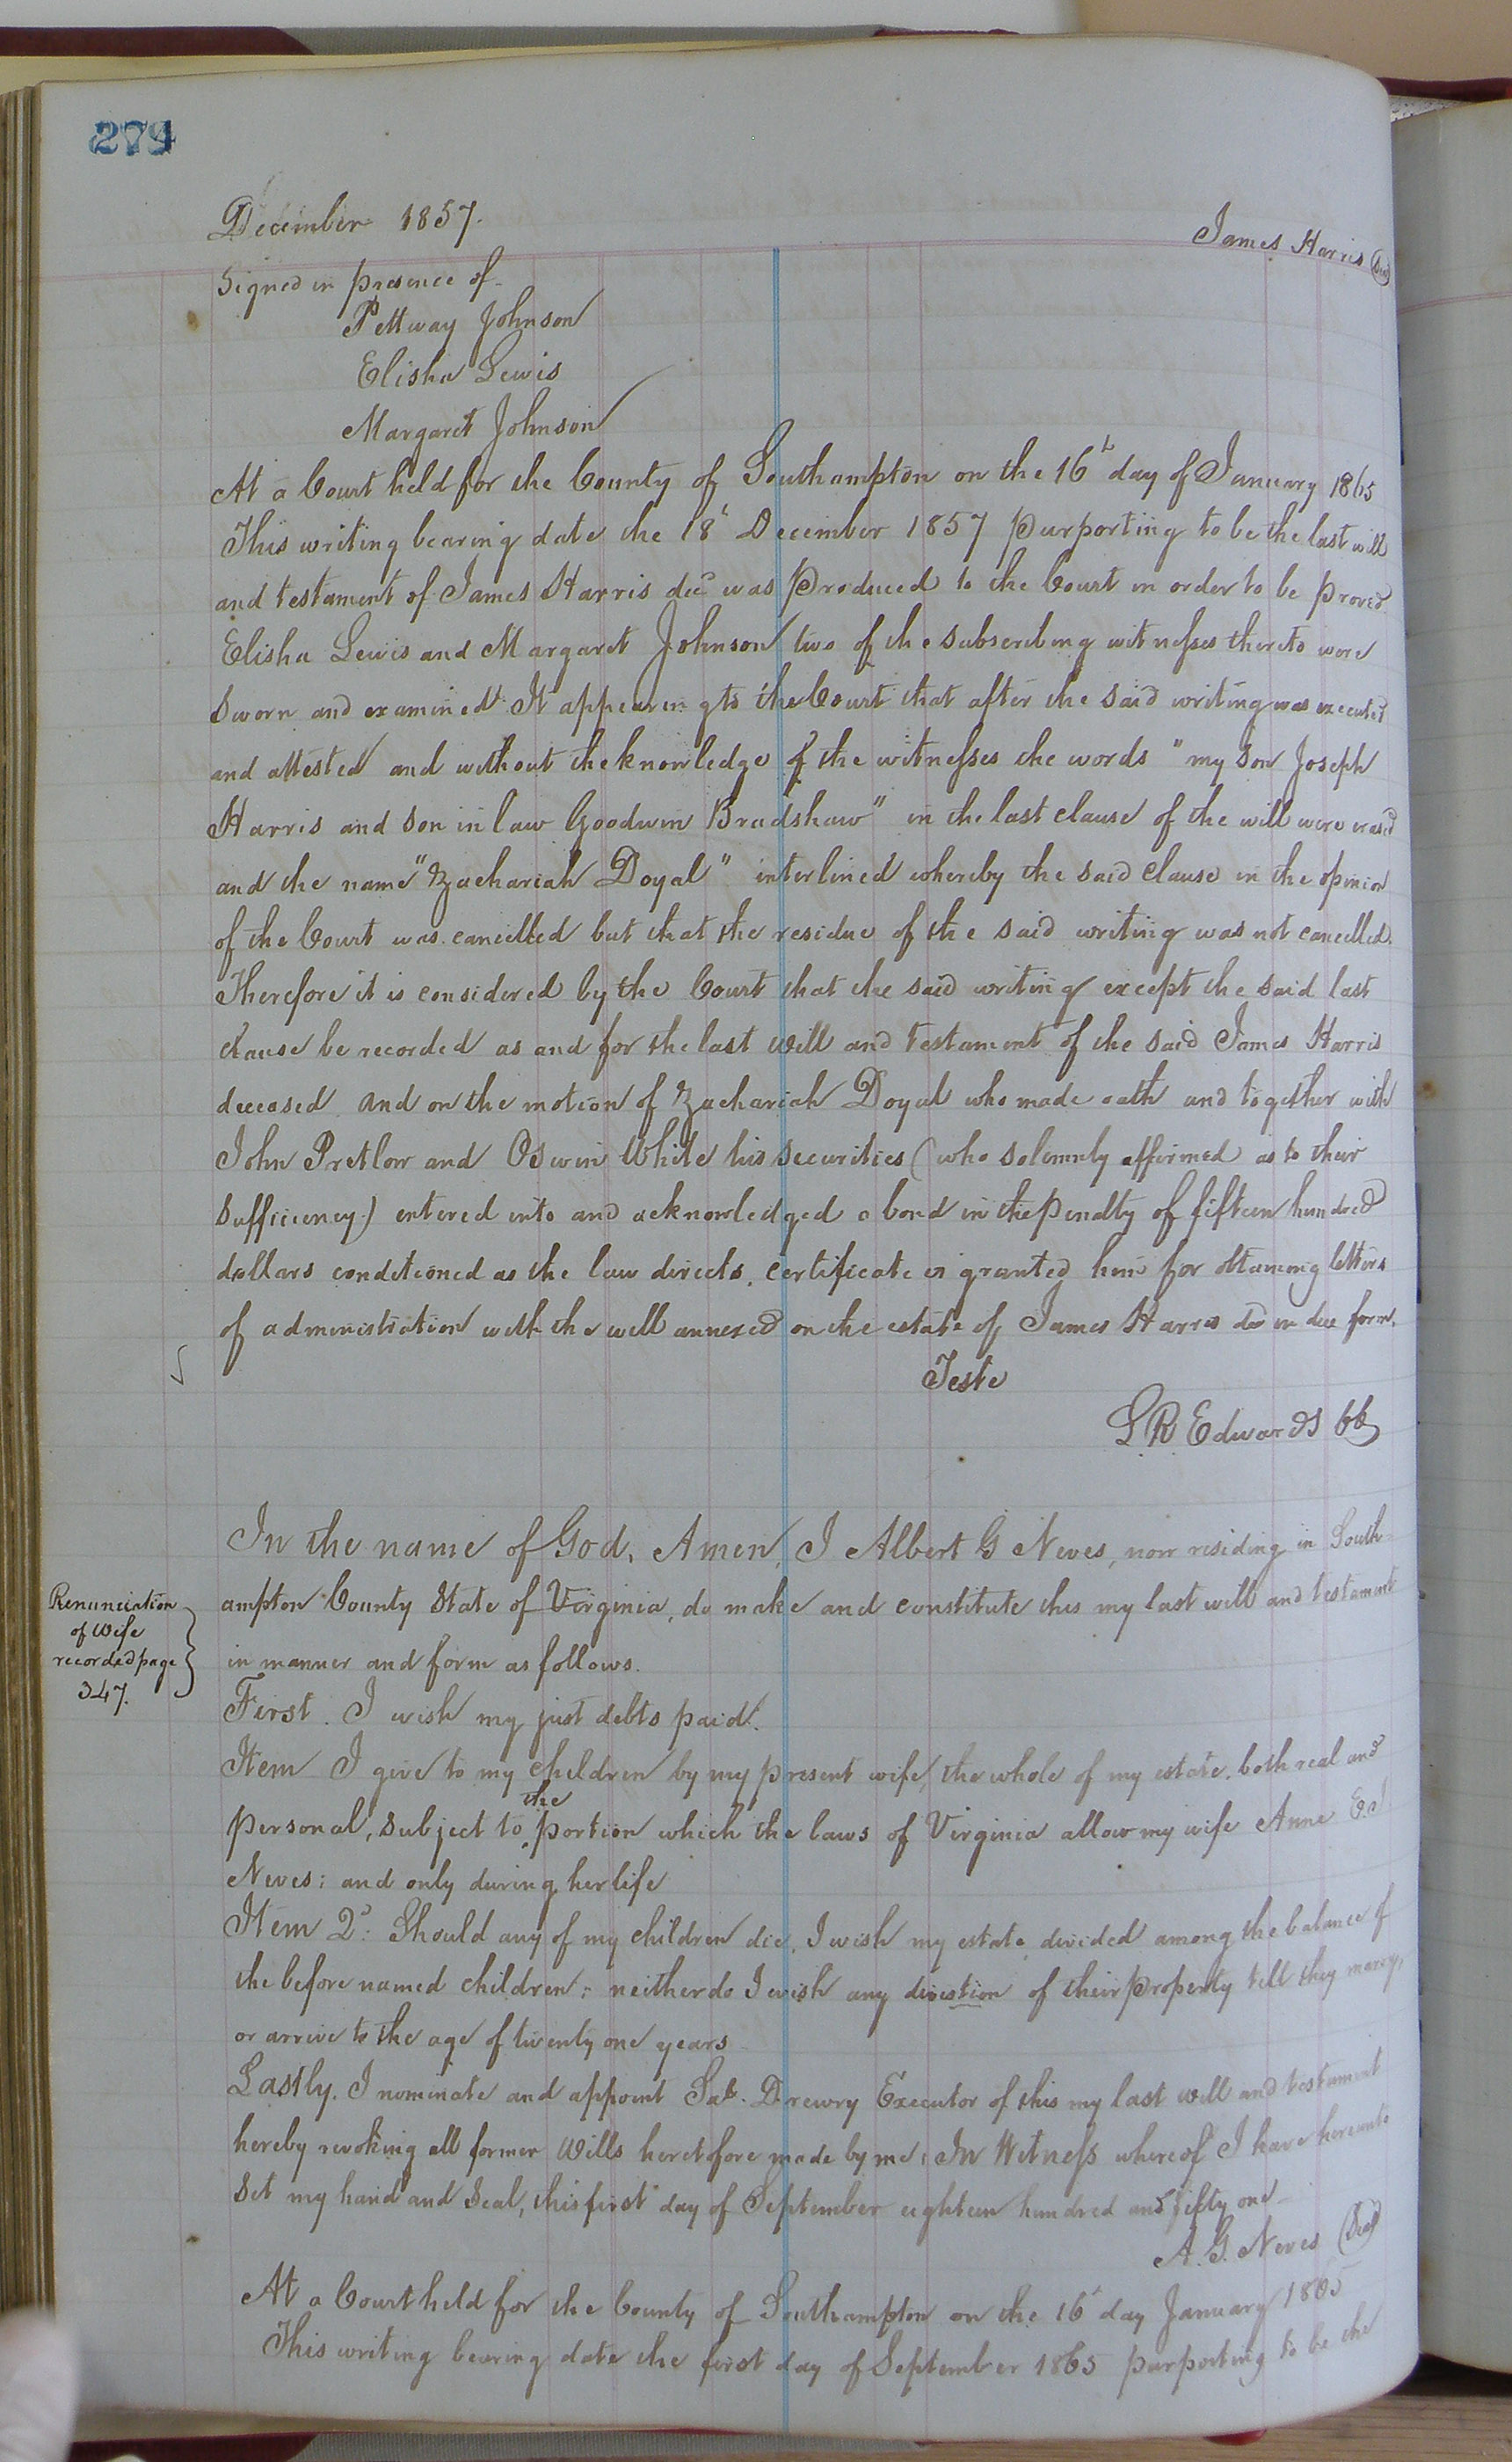 274
December 1857.
James Harris (Seal)
Signed in presence of
Pettway Johnson
Elisha Lewis
Margaret Johnson
At a Court held for the County of Southampton on the 16th day of January 1865
This writing bearing date the 18th December 1857 purporting to be the last will
and testament of James Harris decd was produced to the Court in order to be proved
Elisha Lewis and Margaret Johnson two of the subscribing witnesses thereto were
sworn and examined. It appearing to the Court that after the said writing was executed
and attested and without the knowledge of the witnesses the words "my son Joseph
Harris and son in law Goodwin Bradshaw" in the last clause of the will were erased
and the name "Zachariah Doyal" interlined whereby the said clause in the opinion
of the Court was cancelled but that the residue of the said writing was not cancelled.
Therefore it is considered by the Court that the said writing except the said last
clause be recorded as and for the last will and testament of the said James Harris
deceased. And on the motion of Zachariah Doyal who made oath and together with
John Pretlow and Oswin White his securities (who solemnly affirmed as to their
sufficiency) entered into and acknowledged a bond in the penalty of fifteen hundred
dollars conditioned as the law directs, certificate is granted him for obtaining letters
of administration with the will annexed on the estate of James Harris decd in due form.
Teste
L R Edwards CC
In the name of God, Amen, I Albert G Neves, now residing in South-
ampton County State of Virginia, do make and constitute this my last will and testament
in manner and form as follows.
Renunciation
of Wife
recorded page
347.
First. I wish my just debts paid.
Item I give to my children by my present wife, the whole of my estate, both real and
personal, subject to the portion which the laws of Virginia allow my wife Anne E.
Neves; and only during her life
Item 2d: Should any of my children die, I wish my estate divided among the balance of
the before named children; neither do I wish any division of their property till they marry,
or arrive to the age of twenty one years
Lastly. I nominate and appoint Drewry Executor of this my last will and testament
hereby revoking all former Wills heretofore made by me; In Witness whereof I have hereunto
set my hand and seal, this first day of September eighteen hundred and fifty one
A. G. Neves (Seal)
At a Court held for the County of Southampton on the 16th day January 1865
This writing bearing date the first day of September 1865 purporting to be the